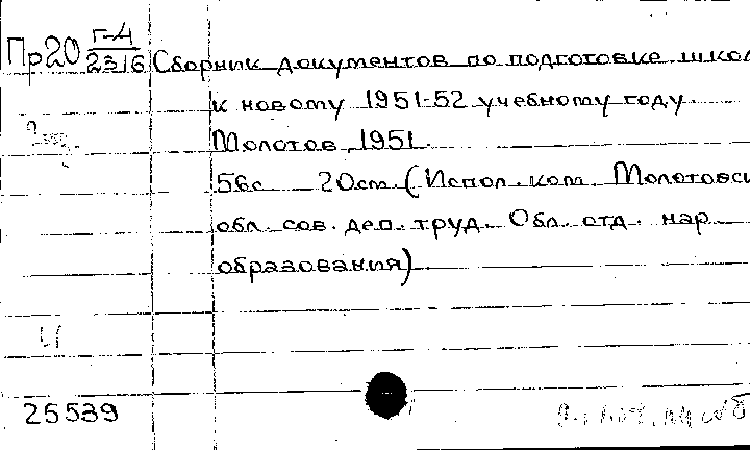 Пр20 Г-А
2316 Сборник документов по подготовке школ
к новому 1951-52 учебному году
Молотов, 1951.
56с 20см. (Испол. ком. Молотовск
обл. сов. деп. труд. Обл. отд. нар
образования)
25539